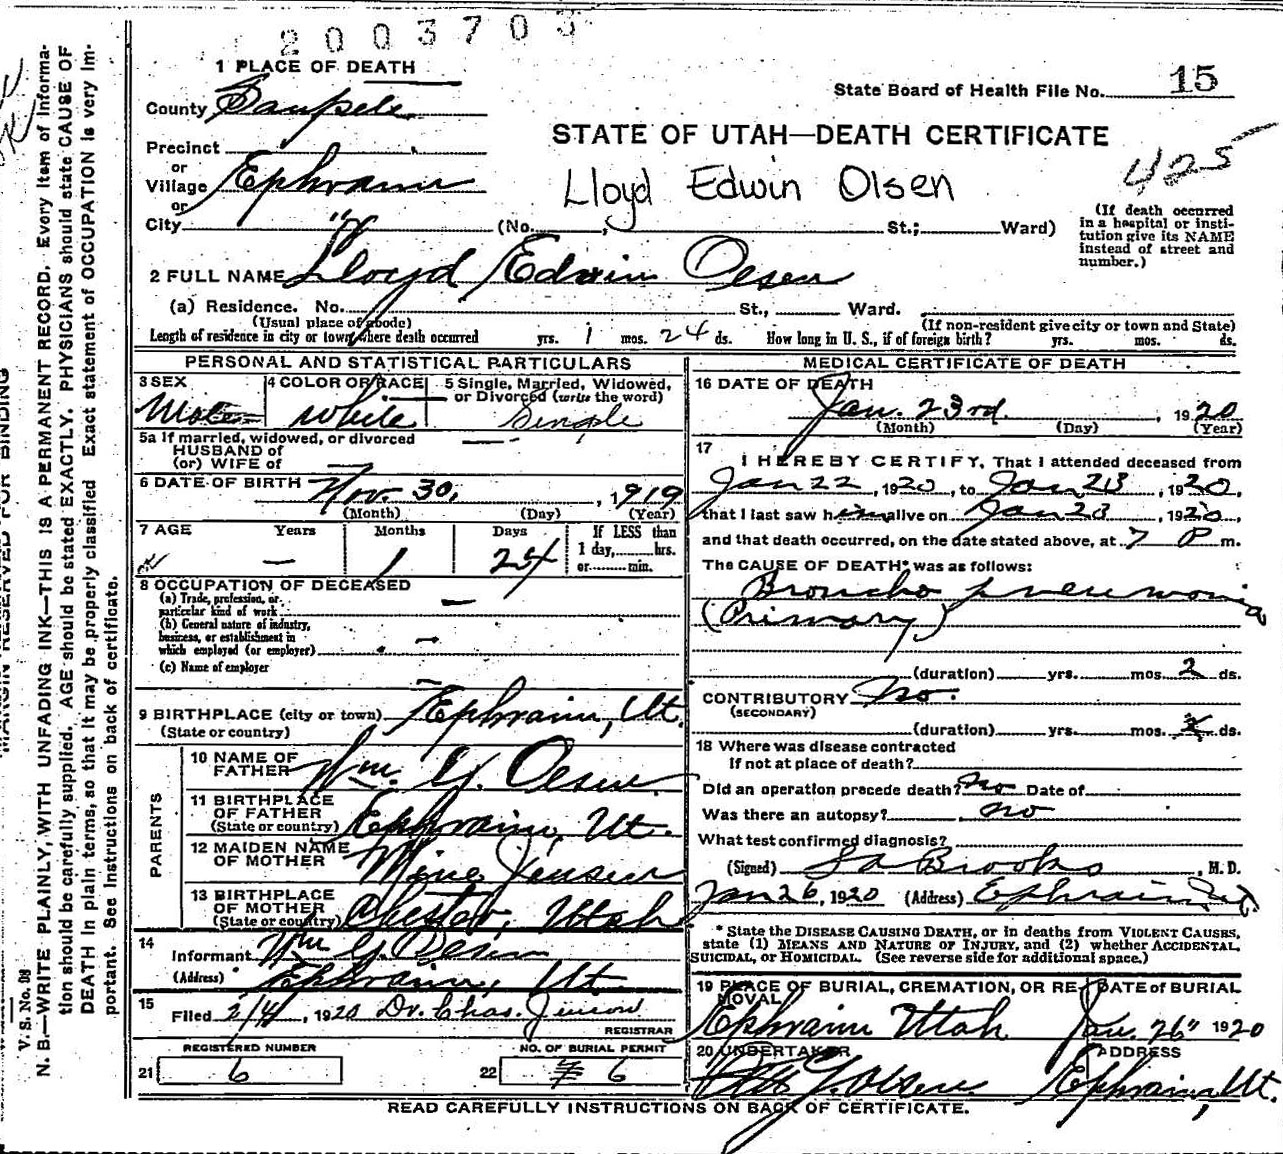 2003703
1 PLACE OF DEATH
State Board of Health File No. 15
County Sanpete
STATE OF UTAH—DEATH CERTIFICATE
Precinct
or
Village Ephraim
Lloyd Edwin Olsen
425
or
City " (No. St.; Ward)
(If death occurred
in a hospital or insti-
tution give its NAME
instead of street and
number.)
2 FULL NAME Lloyd Edwin Olsen
(a) Residence. No. St., Ward.
(Usual place of abode) (If non-resident give city or town and State)
Length of residence in city or town where death occurred yrs. 1 mos. 24 ds. How long in U. S., if of foreign birth? yrs. mos. ds.
PERSONAL AND STATISTICAL PARTICULARS
3 SEX 4 COLOR OR RACE 5 Single, Married, Widowed,
or Divorced (write the word)
Male White Single
5a If married, widowed, or divorced
HUSBAND of
(or) WIFE of
6 DATE OF BIRTH Nov. 30, 1919
(Month) (Day) (Year)
7 AGE Years Months Days If LESS than
1 day, hrs.
or min.
— 1 24
8 OCCUPATION OF DECEASED
(a) Trade, profession, or
particular kind of work —
(b) General nature of industry,
business, or establishment in
which employed (or employer) —
(c) Name of employer
9 BIRTHPLACE (city or town) Ephraim, Ut.
(State or country)
PARENTS
10 NAME OF
FATHER Wm. Y. Olsen
11 BIRTHPLACE
OF FATHER
(State or country) Ephraim, Ut.
12 MAIDEN NAME
OF MOTHER Mine Jensen
13 BIRTHPLACE
OF MOTHER
(State or country) Chester, Utah
14
Informant Wm Y. Olsen
(Address) Ephraim, Ut.
15
Filed 2/4, 1920 Dr. Chas. Jenson
REGISTRAR
REGISTERED NUMBER NO. OF BURIAL PERMIT
21 6 22 6
MEDICAL CERTIFICATE OF DEATH
16 DATE OF DEATH
Jan. 23rd, 1920
(Month) (Day) (Year)
17
I HEREBY CERTIFY, That I attended deceased from
Jan 22, 1920, to Jan 23, 1920,
that I last saw him alive on Jan 23, 1920,
and that death occurred, on the date stated above, at 7 P m.
The CAUSE OF DEATH* was as follows:
Broncho pneumonia
(Primary)
(duration) yrs. mos. 2 ds.
CONTRIBUTORY No.
(SECONDARY)
(duration) yrs. mos. ds.
18 Where was disease contracted
If not at place of death?
Did an operation precede death? no Date of
Was there an autopsy? no
What test confirmed diagnosis?
(Signed) Brooks, M.D.
Jan 26, 1920 (Address) Ephraim, Ut
* State the DISEASE CAUSING DEATH, or in deaths from VIOLENT CAUSES,
state (1) MEANS AND NATURE OF INJURY, and (2) whether ACCIDENTAL,
SUICIDAL, or HOMICIDAL. (See reverse side for additional space.)
19 PLACE OF BURIAL, CREMATION, OR RE- DATE of BURIAL
MOVAL
Ephraim Utah Jan. 26" 1920
20 UNDERTAKER ADDRESS
Y. Olsen Ephraim, Ut.
READ CAREFULLY INSTRUCTIONS ON BACK OF CERTIFICATE.
MARGIN RESERVED FOR BINDING
V. S. No. 98
N. B.—WRITE PLAINLY, WITH UNFADING INK—THIS IS A PERMANENT RECORD. Every item of informa-
tion should be carefully supplied. AGE should be stated EXACTLY. PHYSICIANS should state CAUSE OF
DEATH in plain terms, so that it may be properly classified. Exact statement of OCCUPATION is very im-
portant. See instructions on back of certificate.